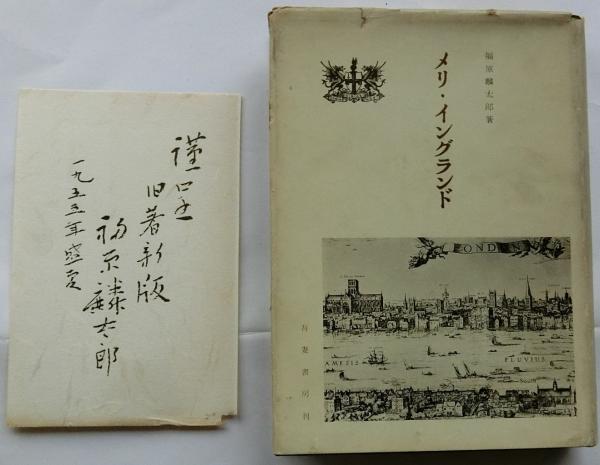 謹呈
旧著新版
福原麟太郎
一九五五年盛夏
福原麟太郎著
メリ・イングランド
LONDON
AMESIS
FLUVIUS
吾妻書房刊